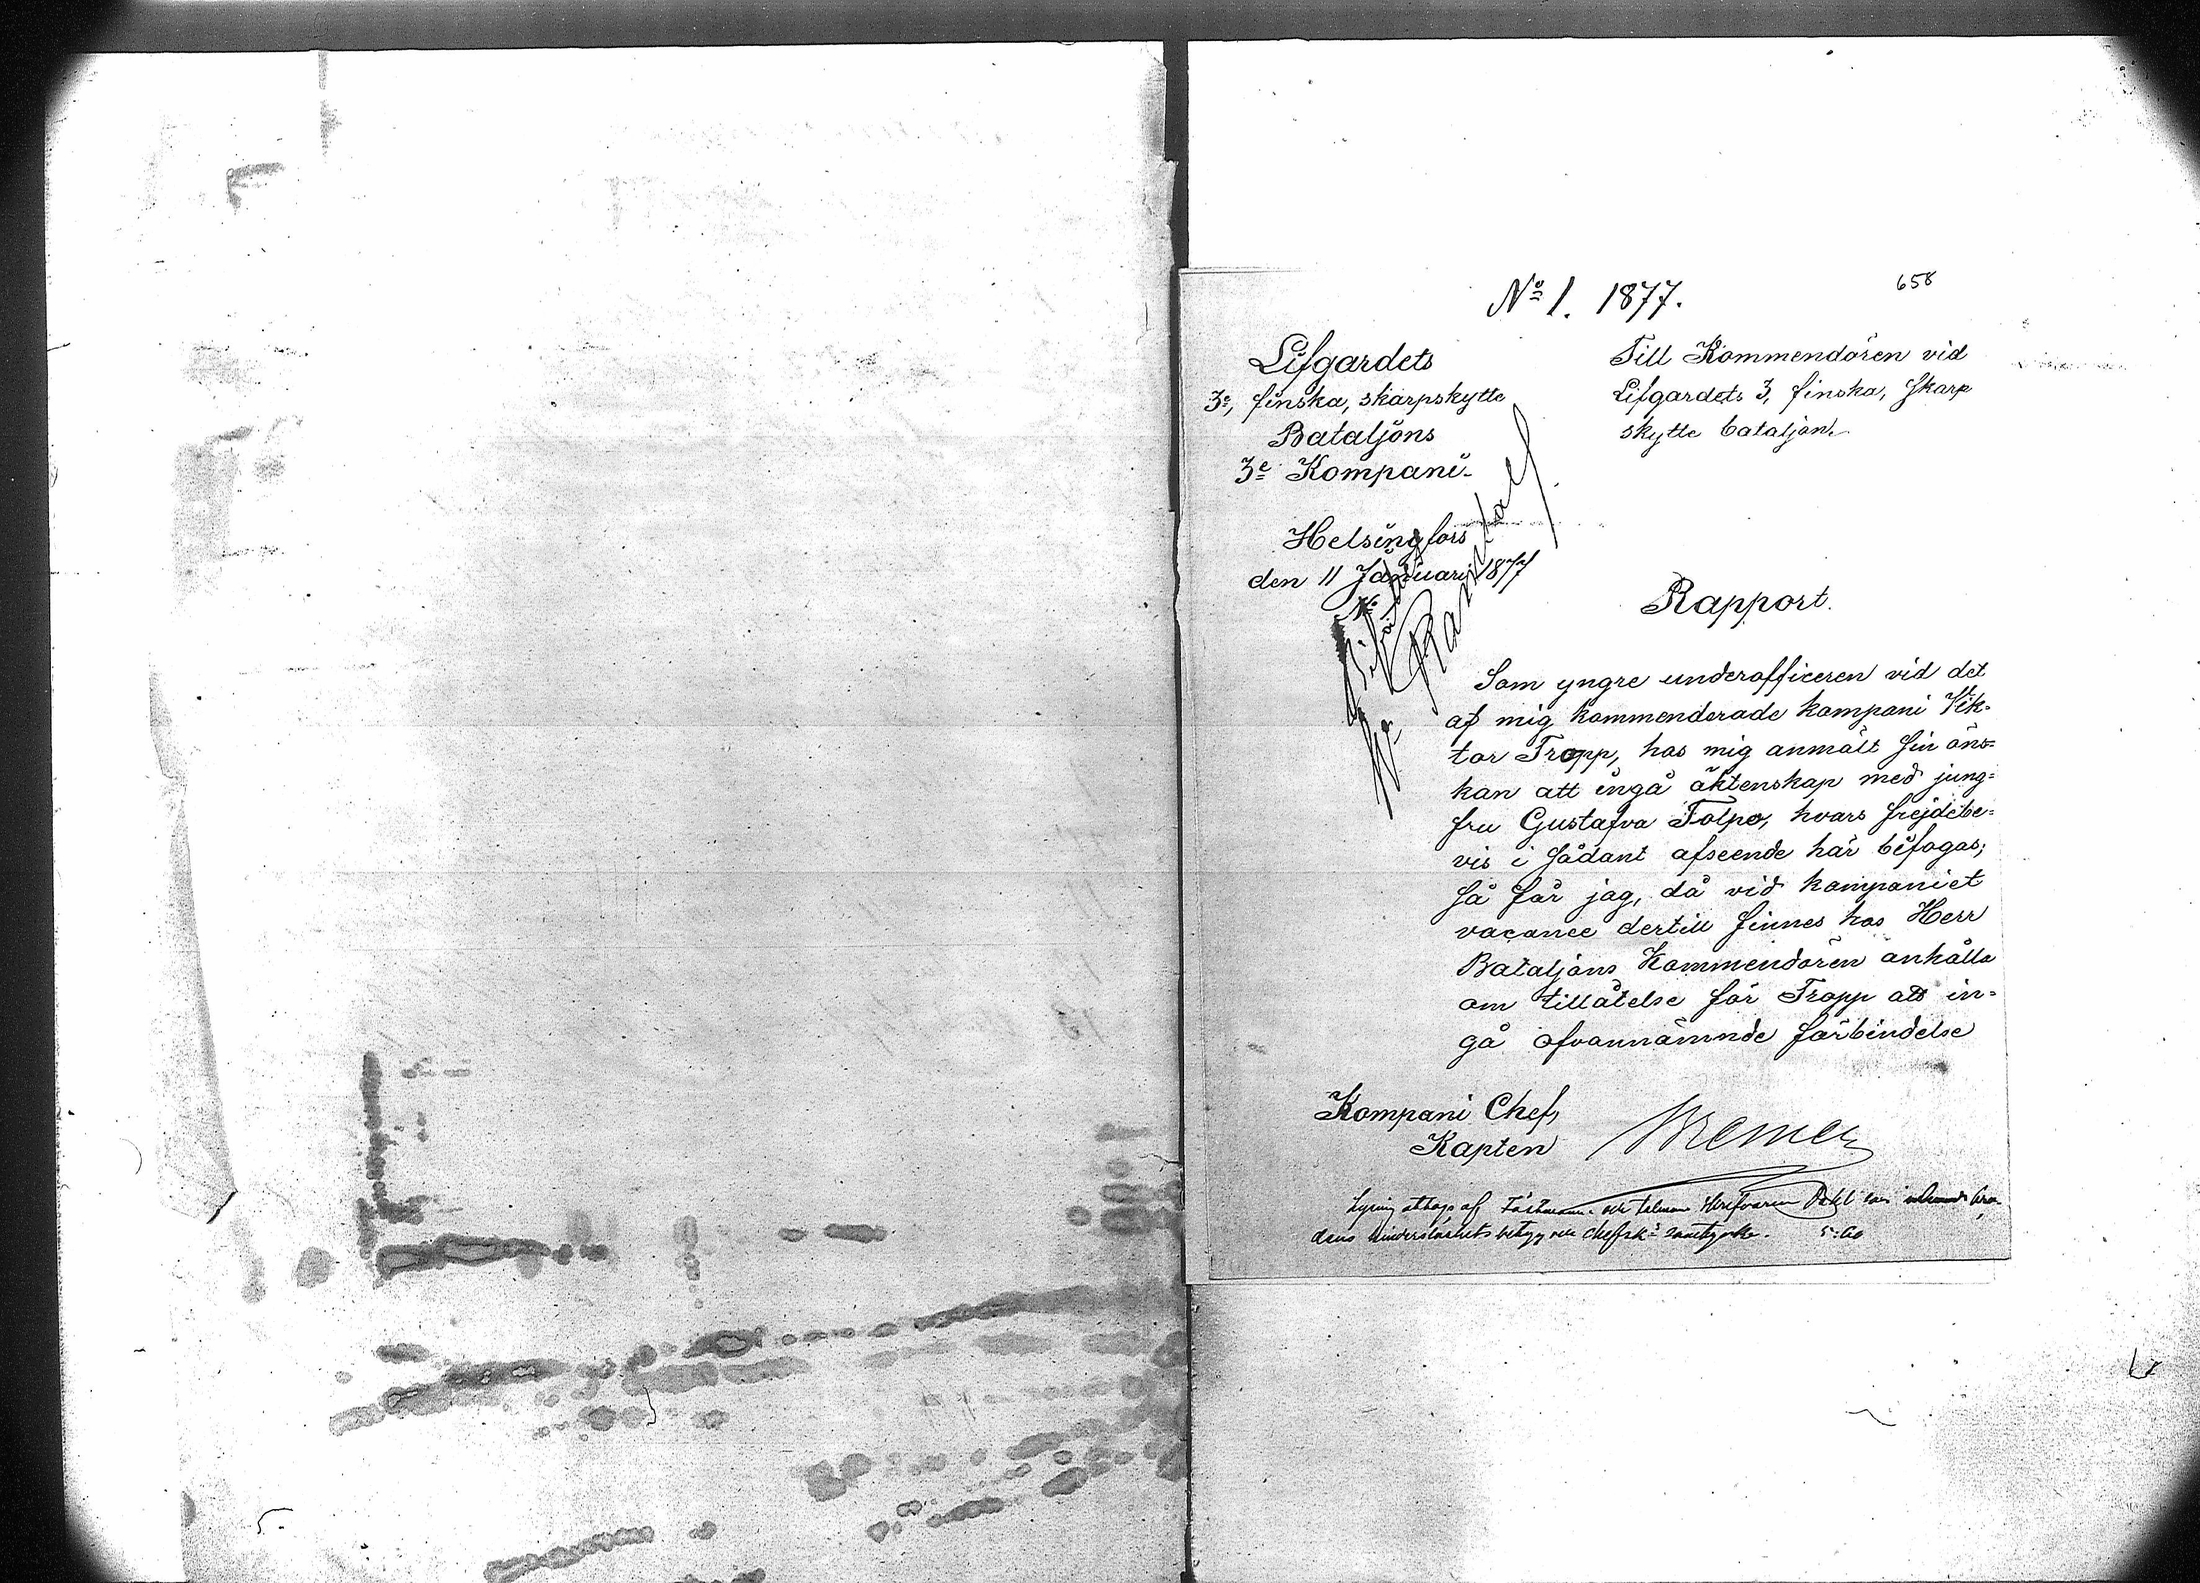 658
No 1. 1877.
Lifgardets
3e, finska, skarpskytte
Bataljöns
3e Kompani.
Helsingfors
den 11 Januari 1877
No
Till Kommendören vid
Lifgardets 3, finska, skarp
skytte bataljon.
Rapport.
Som yngre underofficeren vid det
af mig kommenderade kompani Vik-
tor Tropp, hos mig anmält sin öns-
kan att ingå äktenskap med jung-
fru Gustafva Tolpo, hvars frejdebe-
vis i sådant afseende här bifogas;
så får jag, då vid kompaniet
vacance dertill finnes hos Herr
Bataljons Kommendören anhålla
om tillåtelse för Tropp att in-
gå ofvannämnde förbindelse
Kompani Chef,
Kapten Bremer
Lysning attogs af